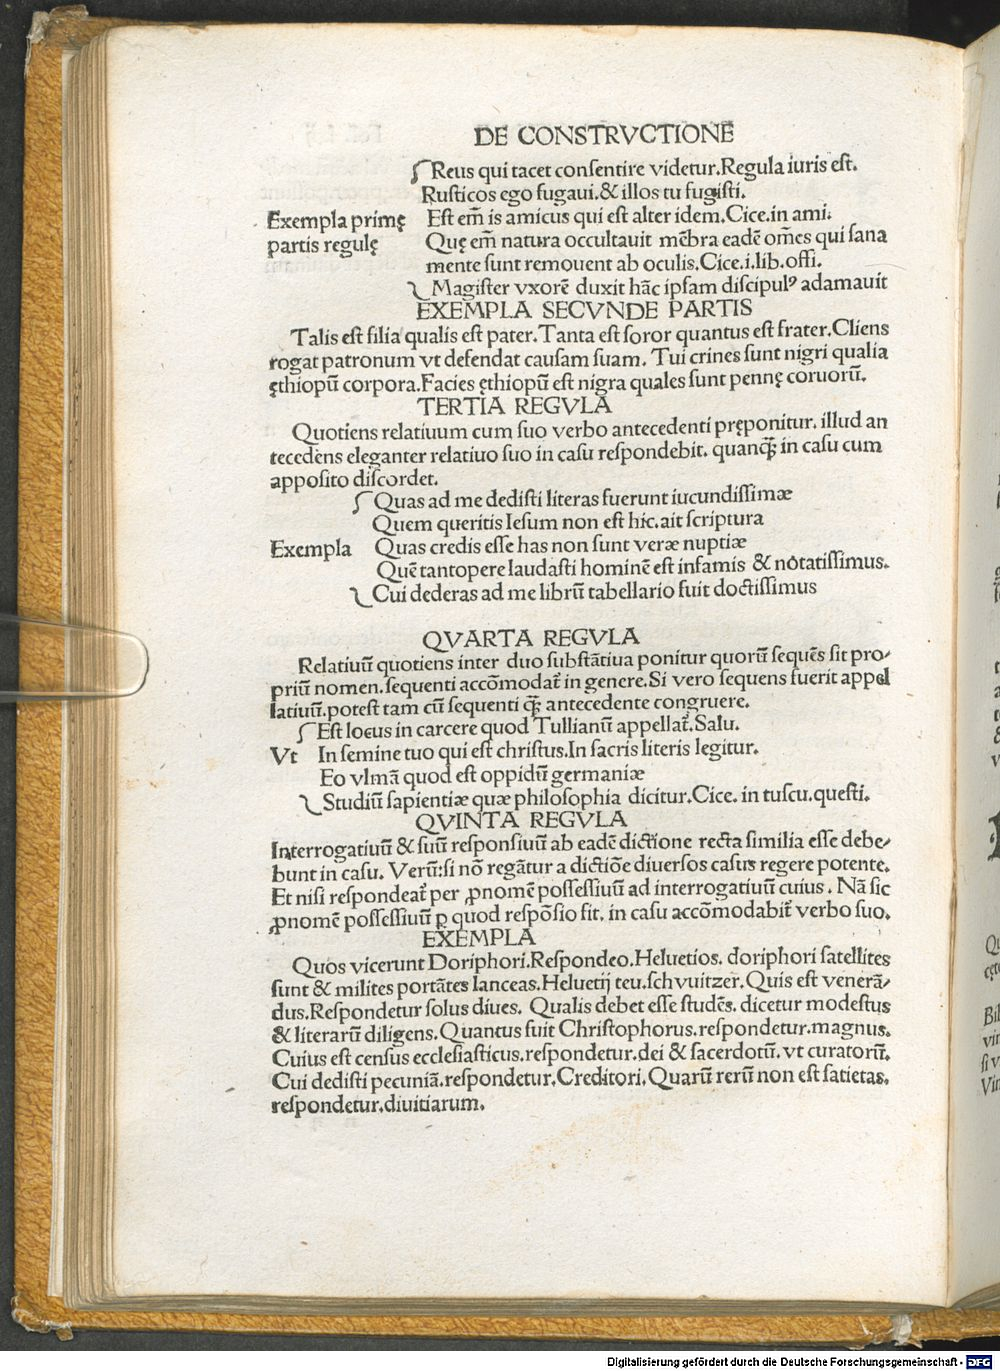 DE CONSTRVCTIONE
Reus qui tacet consentire videtur.Regula iuris est.
Rusticos ego fugaui.& illos tu fugisti.
Exempla primę Est em̄ is amicus qui est alter idem.Cice.in ami.
partis regulę Quę em̄ natura occultauit mēbra eadē om̄es qui sana
mente sunt remouent ab oculis.Cice.i.lib.offi.
Magister vxorē duxit hāc ipsam discipulꝰ adamauit
EXEMPLA SECVNDE PARTIS
Talis est filia qualis est pater.Tanta est soror quantus est frater.Cliens
rogat patronum vt defendat causam suam. Tui crines sunt nigri qualia
ęthiopū corpora.Facies ęthiopū est nigra quales sunt pennę coruorū.
TERTIA REGVLA
Quotiens relatiuum cum suo verbo antecedenti pręponitur. illud an
tecedens eleganter relatiuo suo in casu respondebit. quanqꝫ in casu cum
apposito discordet.
Quas ad me dedisti literas fuerunt iucundissimæ
Quem queritis Iesum non est hic.ait scriptura
Exempla Quas credis esse has non sunt veræ nuptiæ
Quē tantopere laudasti hominē est infamis & notatissimus.
Cui dederas ad me librū tabellario fuit doctissimus
QVARTA REGVLA
Relatiuū quotiens inter duo substātiua ponitur quorū sequēs sit pro/
priū nomen.sequenti accōmodat̄ in genere.Si vero sequens fuerit appel
latiuū.potest tam cū sequenti qꝫ antecedente congruere.
Est locus in carcere quod Tullianū appellat̄.Salu.
Vt In semine tuo qui est christus.In sacris literis legitur.
Eo vlmā quod est oppidū germaniæ
Studiū sapientiæ quæ philosophia dicitur.Cice. in tuscu.questi.
QVINTA REGVLA
Interrogatiuū & suū responsiuū ab eadē dictione recta similia esse debe/
bunt in casu. Verū:si nō regātur a dictiōe diuersos casus regere potente.
Et nisi respondeat̄ per ꝓnomē possessiuū ad interrogatiuū cuius. Nā sic
ꝓnomē possessiuū ꝑ quod respōsio fit. in casu accōmodabit̄ verbo suo.
EXEMPLA
Quos vicerunt Doriphori.Respondeo.Heluetios. doriphori satellites
sunt & milites portātes lanceas.Heluetij teu.schvuitzer.Quis est venerā/
dus.Respondetur solus diues. Qualis debet esse studēs. dicetur modestus
& literarū diligens.Quantus fuit Christophorus.respondetur.magnus.
Cuius est census ecclesiasticus.respondetur.dei & sacerdotū. vt curatorū.
Cui dedisti pecuniā.respondetur.Creditori.Quarū rerū non est satietas.
respondetur.diuitiarum.
Digitalisierung gefördert durch die Deutsche Forschungsgemeinschaft - DFG